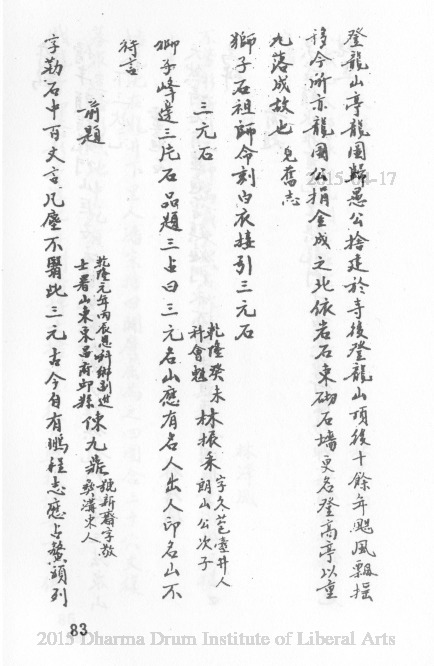 登龍山亭龍圖歸愚公捨建於寺後登龍山頂後十餘年颶風飄搖
移今所亦龍圖公捐金成之北依岩石東砌石墻更名登高亭以重
九落成故也 見舊志
獅子石祖師命刻白衣接引三元石
三元石 乾隆癸未科會魁 林振釆 字久芑臺井人朗山公次子
獅子峰邊三片石品題三占曰三元名山應有名人出人印名山不
待言
前題 乾隆元年丙辰恩科鄉副進士署山東東昌府邱縣 陳九鼎 號新齋字敬 溝宋人
字勒石中百丈言凡塵不翳此三元古今自有鵬程志應占鰲頭列
83
2015-04-17
2015 Dharma Drum Institute of Liberal Arts